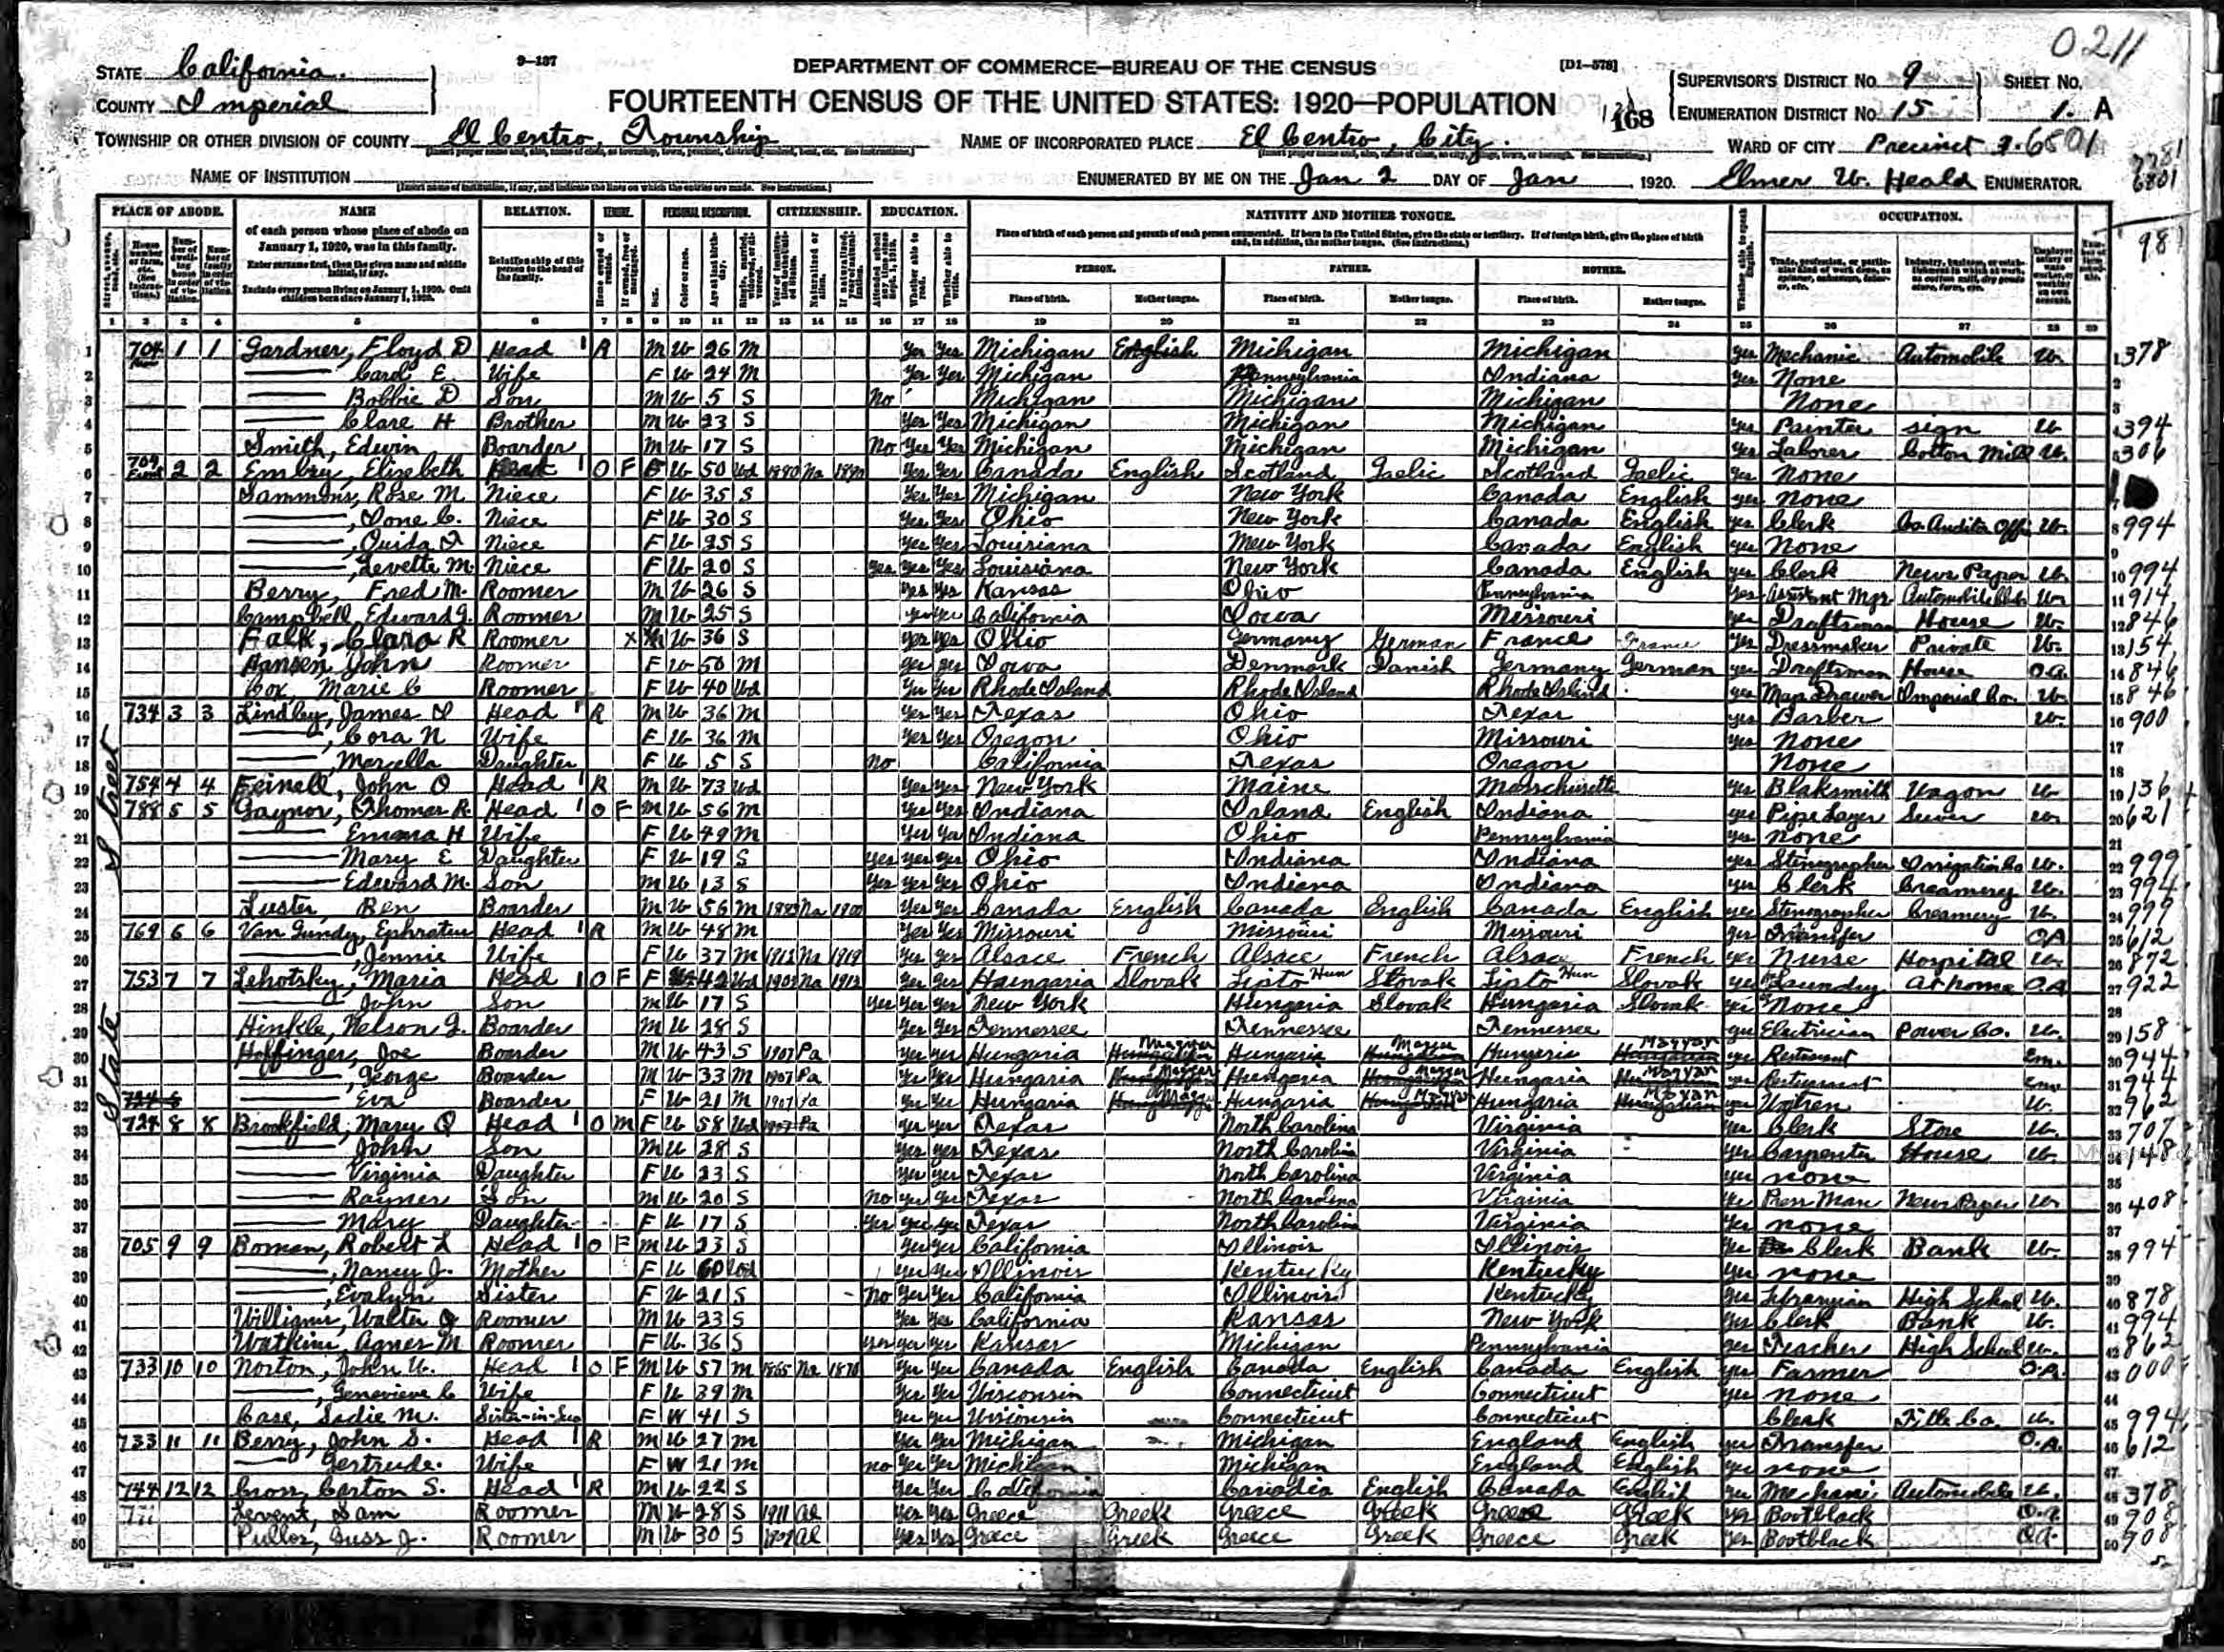 0211
STATE California. 9—137 DEPARTMENT OF COMMERCE—BUREAU OF THE CENSUS [D1-578] SUPERVISOR'S DISTRICT No. 9 SHEET No.
COUNTY Imperial FOURTEENTH CENSUS OF THE UNITED STATES: 1920—POPULATION 168 ENUMERATION DISTRICT No. 15 1. A
TOWNSHIP OR OTHER DIVISION OF COUNTY El Centro, Township NAME OF INCORPORATED PLACE El Centro, City. WARD OF CITY Precinct 6801
NAME OF INSTITUTION ENUMERATED BY ME ON THE Jan 2 DAY OF Jan, 1920. Elmer W. Heald ENUMERATOR.
PLACE OF ABODE. NAME RELATION. TENURE. PERSONAL DESCRIPTION. CITIZENSHIP. EDUCATION. NATIVITY AND MOTHER TONGUE. OCCUPATION.
of each person whose place of abode on January 1, 1920, was in this family.
Enter surname first, then the given name and middle initial, if any.
Include every person living on January 1, 1920. Omit children born since January 1, 1920.
Relationship of this person to the head of the family.
Place of birth of each person and parents of each person enumerated. If born in the United States, give the state or territory. If of foreign birth, give the place of birth and, in addition, the mother tongue. (See instructions.)
PERSON. FATHER. MOTHER.
Place of birth. Mother tongue. Place of birth. Mother tongue. Place of birth. Mother tongue.
1 2 3 4 5 6 7 8 9 10 11 12 13 14 15 16 17 18 19 20 21 22 23 24 25 26 27 28 29
1 704 1 1 Gardner, Floyd D Head R M W 26 M Yes Yes Michigan English Michigan Michigan yes Mechanic Automobile W 378
2 Carol E Wife F W 24 M Yes Yes Michigan Pennsylvania Indiana yes None
3 Bobbie D Son M W 5 S No Michigan Michigan Michigan None
4 Clare H Brother M W 23 S Yes Yes Michigan Michigan Michigan yes Painter sign W 394
5 Smith, Edwin Boarder M W 17 S No Yes Yes Michigan Michigan Michigan yes Laborer Cotton Mill W. 306
6 709 2 2 Embry, Elizabeth Head O F F W 50 Wd 1880 Na Yes Yes Canada English Scotland Gaelic Scotland Gaelic yes None
7 Sammons, Rose M. Niece F W 35 S Yes Yes Michigan New York Canada English yes None
8 Ione C. Niece F W 30 S Yes Yes Ohio New York Canada English yes Clerk Co. Auditor Offi W. 994
9 Ouida Niece F W 25 S Yes Yes Louisiana New York Canada English yes None
10 Levette M. Niece F W 20 S Yes Yes Yes Louisiana New York Canada English yes Clerk News Paper W. 994
11 Berry, Fred M. Roomer M W 26 S Yes Yes Kansas Ohio Pennsylvania yes Assistant Mgr Automobile W 914
12 Campbell Edward G. Roomer M W 25 S yes yes California Iowa Missouri yes Draftsman House W. 846
13 Falk, Clara R Roomer W 36 S yes yes Ohio Germany German France France yes Dressmaker Private W. 154
14 Hansen, John Roomer F W 50 M yes yes Iowa Denmark Danish Germany German yes Draftsman House O.A. 846
15 Cox, Marie C Roomer F W 40 Wd Yes Yes Rhode Island Rhode Island Rhode Island yes Map Drawer Imperial Co. W. 846
16 734 3 3 Lindley, James Head R M W 36 M Yes Yes Texas Ohio Texas yes Barber W. 900
17 Cora N Wife F W 36 M Yes Yes Oregon Ohio Missouri yes None
18 Marcella Daughter F W 5 S no California Texas Oregon None
19 754 4 4 Feinell, John O Head R M W 73 Wd Yes Yes New York Maine Massachusetts yes Blaksmith Wagon W 136
20 788 5 5 Gaynor, Thomas R. Head O F M W 56 M Yes Yes Indiana Irland English Indiana yes Pipe Layer Sewer W 621
21 Emma H Wife F W 49 M Yes Yes Indiana Ohio Pennsylvania yes None
22 Mary E Daughter F W 19 S yes yes yes Ohio Indiana Indiana yes Stenographer Irrigation Co W. 999
23 Edward M. Son M W 13 S Yes Yes Yes Ohio Indiana Indiana yes Clerk Creamery W. 994
24 Luster, Ben Boarder M W 56 M Na 1900 Yes Yes Canada English Canada English Canada English yes Stenographer Creamery W. 999
25 769 6 6 Van Gundy, Head R M W 48 M Yes Yes Missouri Missouri Missouri yes Transfer OA 612
26 Jennie Wife F W 37 M 1912 Na 1919 yes yes Alsace French Alsace French Alsace French yes Nurse Hospital W. 872
27 753 7 7 Lehotsky, Maria Head O F F W 42 Wd Na Yes Yes Hungaria Slovak Lipto Hun Slovak Lipto Hun Slovak yes Laundry At home O.A 922
28 John Son M W 17 S Yes Yes Yes New York Hungaria Slovak Hungaria Slovak yes None
29 Hinkle, Nelson G. Boarder M W 28 S Yes Yes Tennessee Tennessee Tennessee yes Electrician Power Co. W. 158
30 Hoffinger, Joe Boarder M W 43 S 1907 Pa Yes Yes Hungaria Magyar Hungaria Magyar Hungaria Magyar yes Restaurant Em. 944
31 George Boarder M W 33 M 1907 Pa Yes Yes Hungaria Magyar Hungaria Magyar Hungaria Magyar yes Restaurant Em 944
32 Eva Boarder F W 21 M 1907 Pa Yes Yes Hungaria Magyar Hungaria Magyar Hungaria Magyar yes Waitren W. 962
33 724 8 8 Brookfield, Mary Head O M F W 58 Wd 1907 Pa yes yes Texas North Carolina Virginia yes Clerk Store W. 707
34 John Son M W 28 S yes yes Texas North Carolina Virginia yes Carpenter House W. 148
35 Virginia Daughter F W 23 S yes yes Texas North Carolina Virginia yes none
36 Raymer Son M W 20 S no yes yes Texas North Carolina Virginia yes Press Man News Paper W 408
37 Mary Daughter F W 17 S Yes yes yes Texas North Carolina Virginia yes none
38 705 9 9 Boman, Robert L Head O F M W 23 S yes yes California Illinois Illinois yes Clerk Bank W. 994
39 Nancy J. Mother F W 60 Wd yes yes Illinois Kentucky Kentucky yes none
40 Evalyn Sister F W 21 S No Yes Yes California Illinois Kentucky yes Librarian High School W. 878
41 Williams, Walter Roomer M W 23 S Yes Yes California Kansas New York yes Clerk Bank W. 994
42 Watkins, Agnes M Roomer F W. 36 S yes yes yes Kansas Michigan Pennsylvania yes Teacher High School W. 862
43 733 10 10 Norton, John W. Head O F M W 57 M 1865 Na Yes Yes Canada English Canada English Canada English yes Farmer O.A. 000
44 Genevieve C Wife F W 39 M Yes Yes Wisconsin Connecticut Connecticut yes none
45 Case, Sadie M. Sister-in-law F W 41 S yes yes Wisconsin Connecticut Connecticut Clerk Title Co. W. 994
46 733 11 11 Berry, John S. Head R M W 27 M Yes Yes Michigan Michigan England English yes Transfer O.A. 612
47 Gertrude. Wife F W 21 M no Yes Yes Michigan Michigan England English yes none
48 744 12 12 Cron, Carton S. Head R M W 22 S Yes Yes California Canadia English Canada English yes Mechanic Automobile W. 378
49 Levent, Sam Roomer M W 28 S 1911 Al Yes Yes Greece Greek Greece Greek Greece Greek yes Bootblack O.A. 908
50 Pullos, Guss J. Roomer M W 30 S Al Yes Yes Greece Greek Greece Greek Greece Greek yes Bootblack O.A. 908
State Street